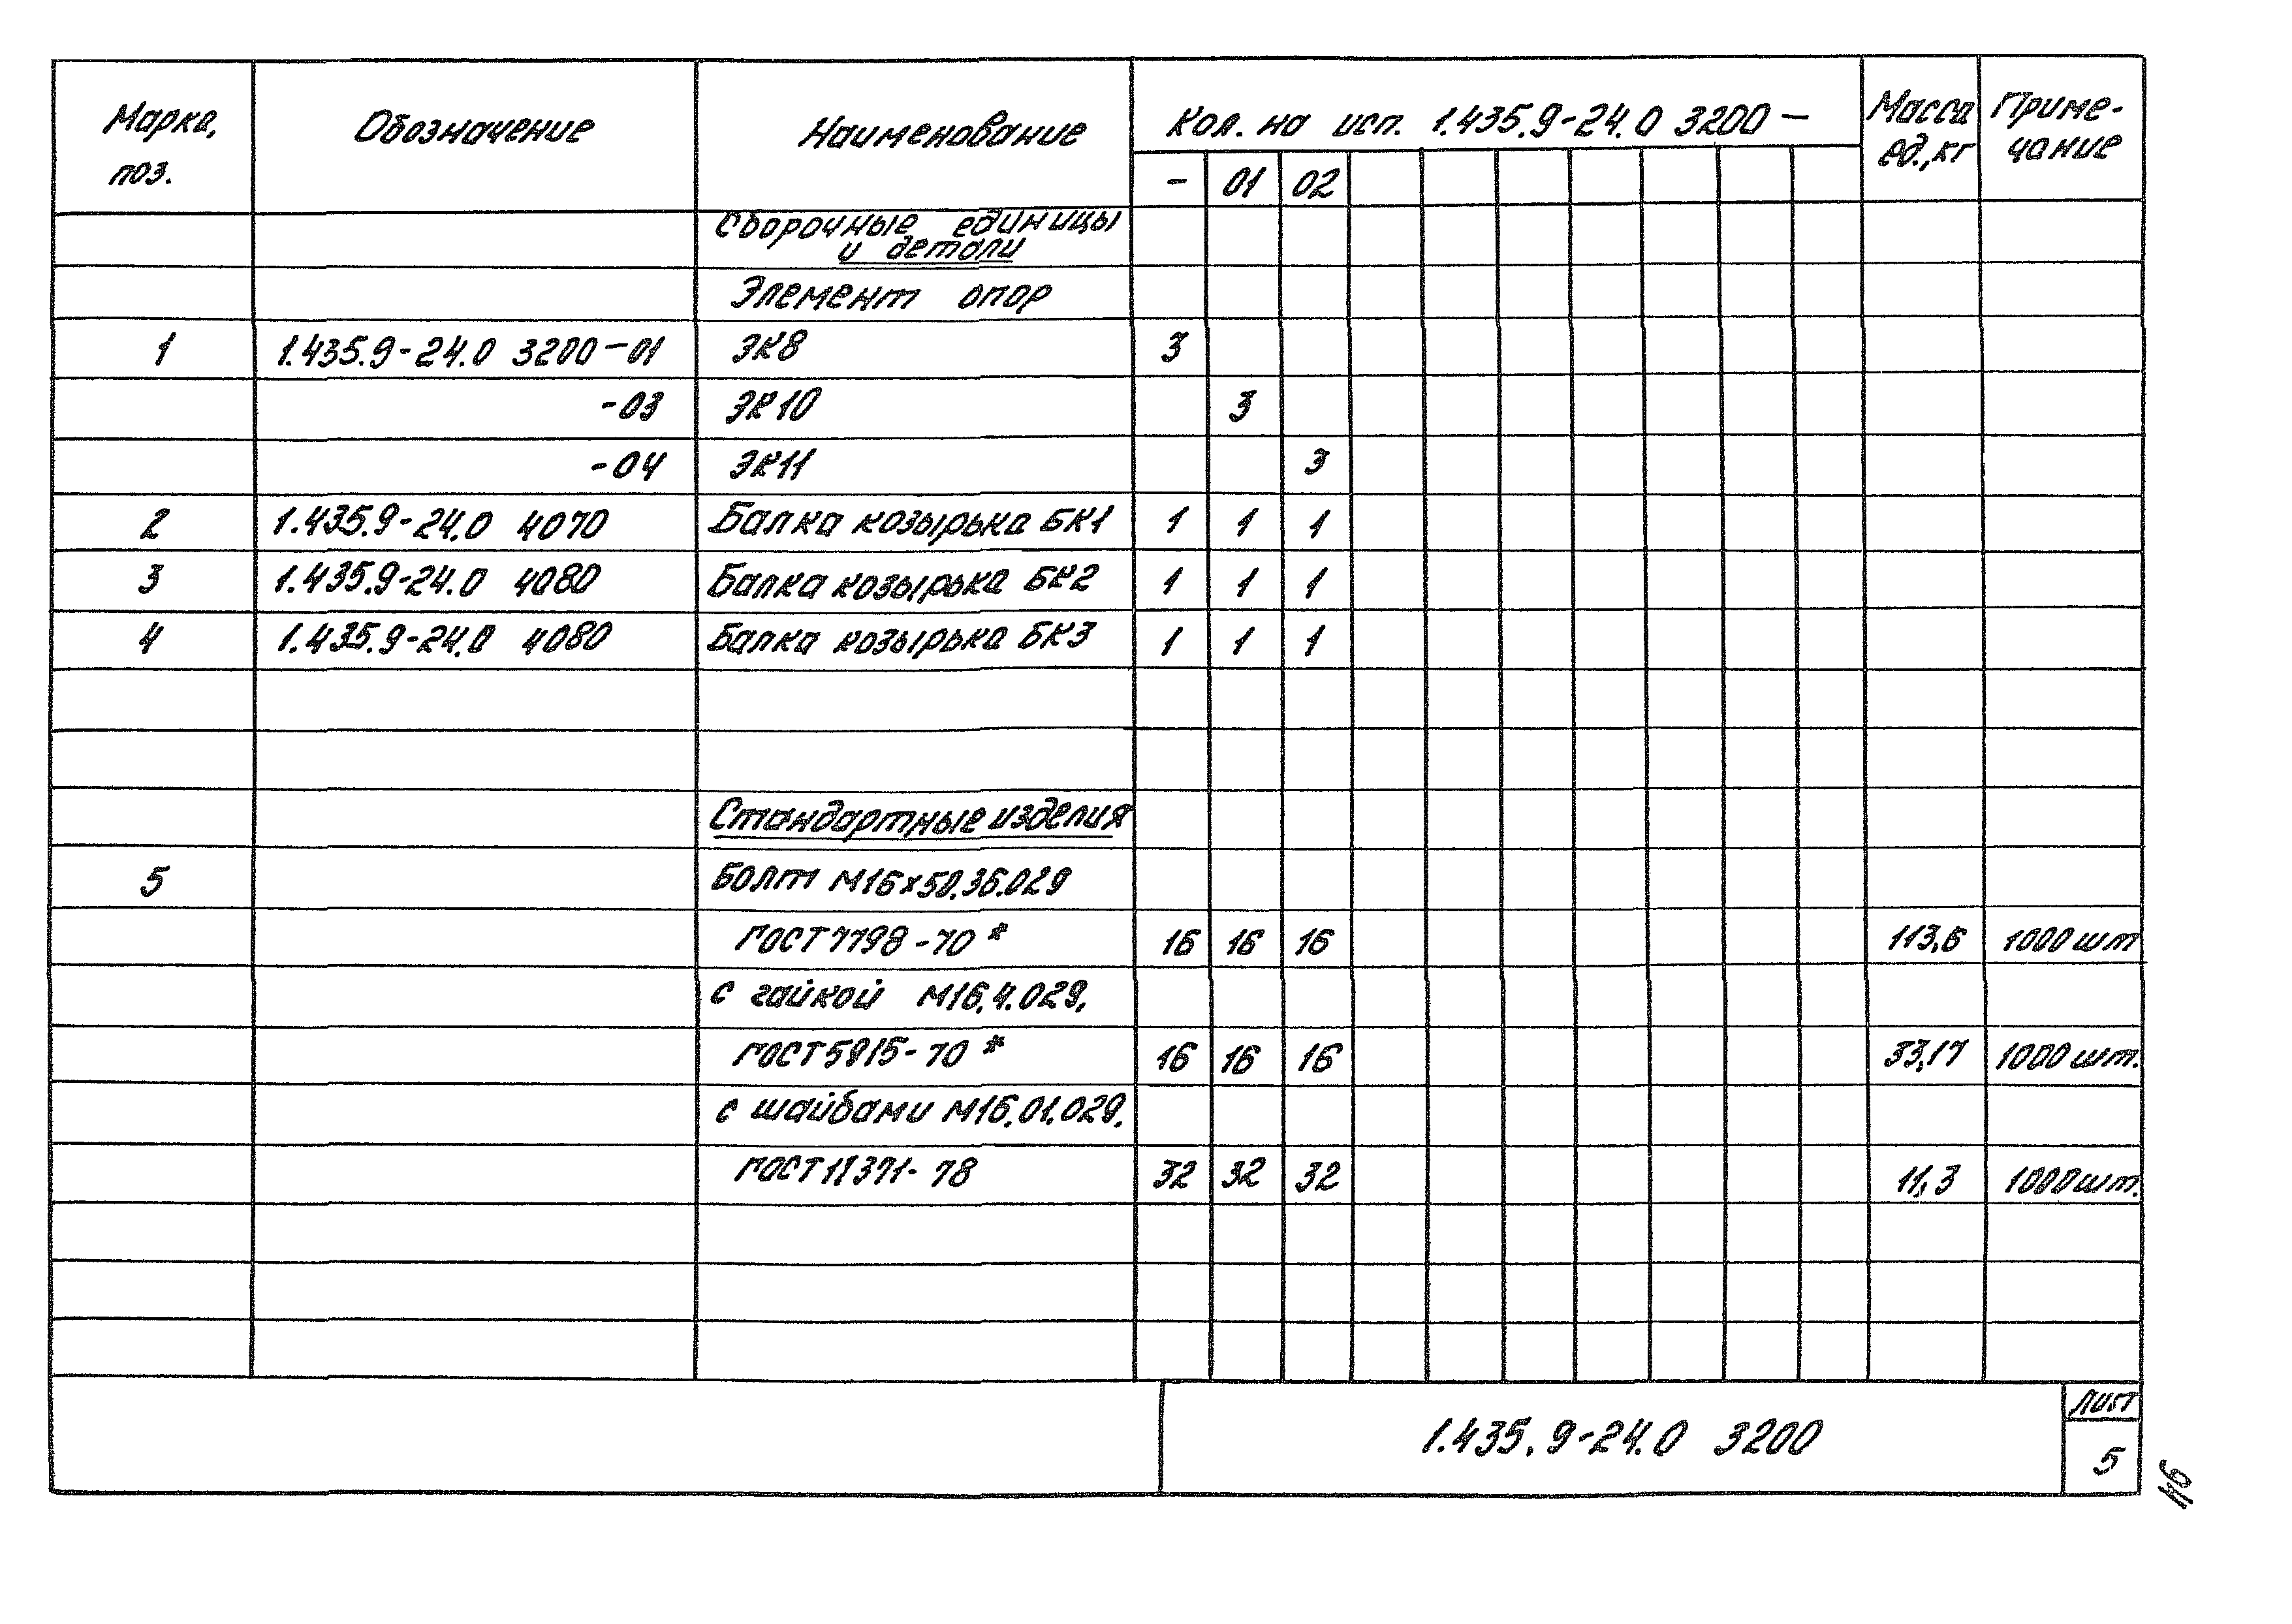 Марка, поз. Обозначение Наименование Кол. на исп. 1.435.9-24.0 3200 — Масса ед., кг Приме-чание
- 01 02
Сборочные единицы
и детали
Элемент опор
1 1.435.9-24.0 3200-01 ЭК8 3
-03 ЭК10 3
-04 ЭК11 3
2 1.435.9-24.0 4070 Балка козырька БК1 1 1 1
3 1.435.9-24.0 4080 Балка козырька БК2 1 1 1
4 1.435.9-24.0 4080 Балка козырька БК3 1 1 1
Стандартные изделия
5 Болт М16х50.36.029
ГОСТ 7798-70* 16 16 16 113,6 1000 шт
с гайкой М16.4.029,
ГОСТ 5915-70* 16 16 16 33,17 1000 шт.
с шайбами М16.01.029.
ГОСТ 11371-78 32 32 32 11,3 1000 шт.
1.435.9-24.0 3200
Лист
5
46